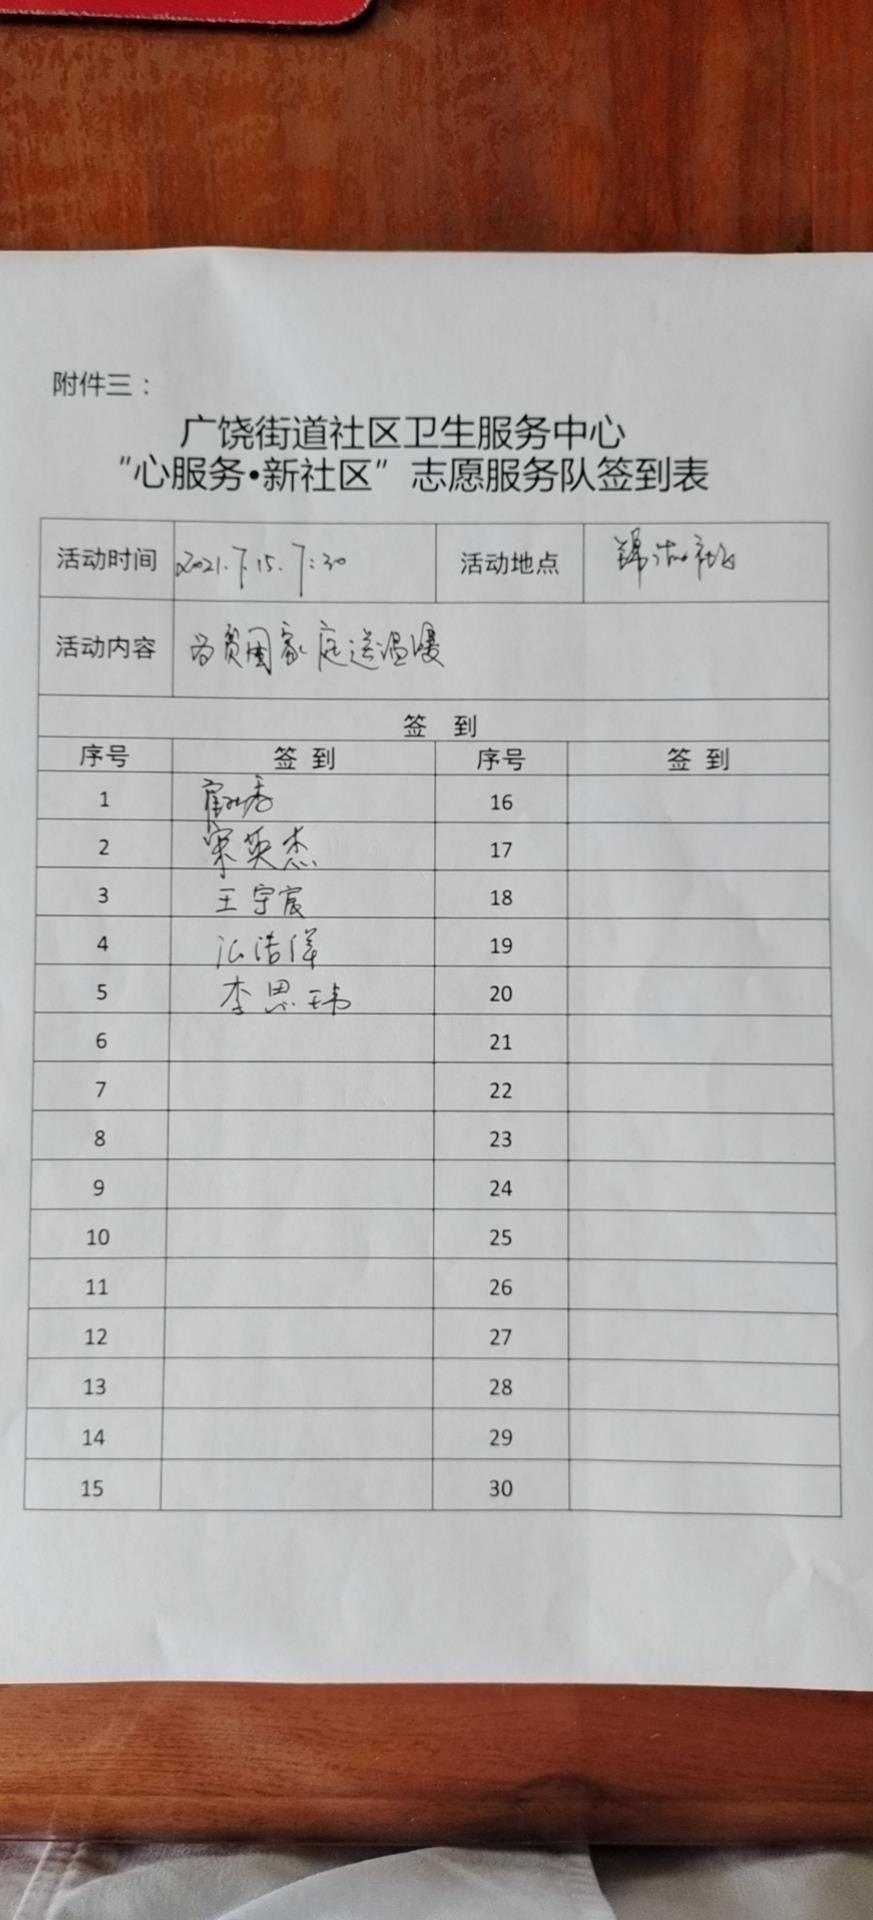 附件三：
广饶街道社区卫生服务中心
“心服务•新社区”志愿服务队签到表
活动时间 2021.7.15.7:30 活动地点 锦 社区
活动内容 为贫困家庭送温暖
签 到
序号 签 到 序号 签 到
1 16
2 宋英杰 17
3 王宇宸 18
4 浩 19
5 李思玮 20
6 21
7 22
8 23
9 24
10 25
11 26
12 27
13 28
14 29
15 30